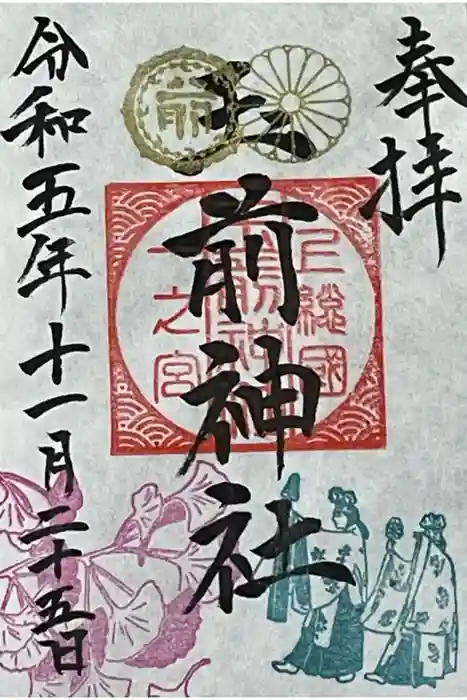 奉拝
玉前神社
上總國
一之宮
令和五年十一月二十五日